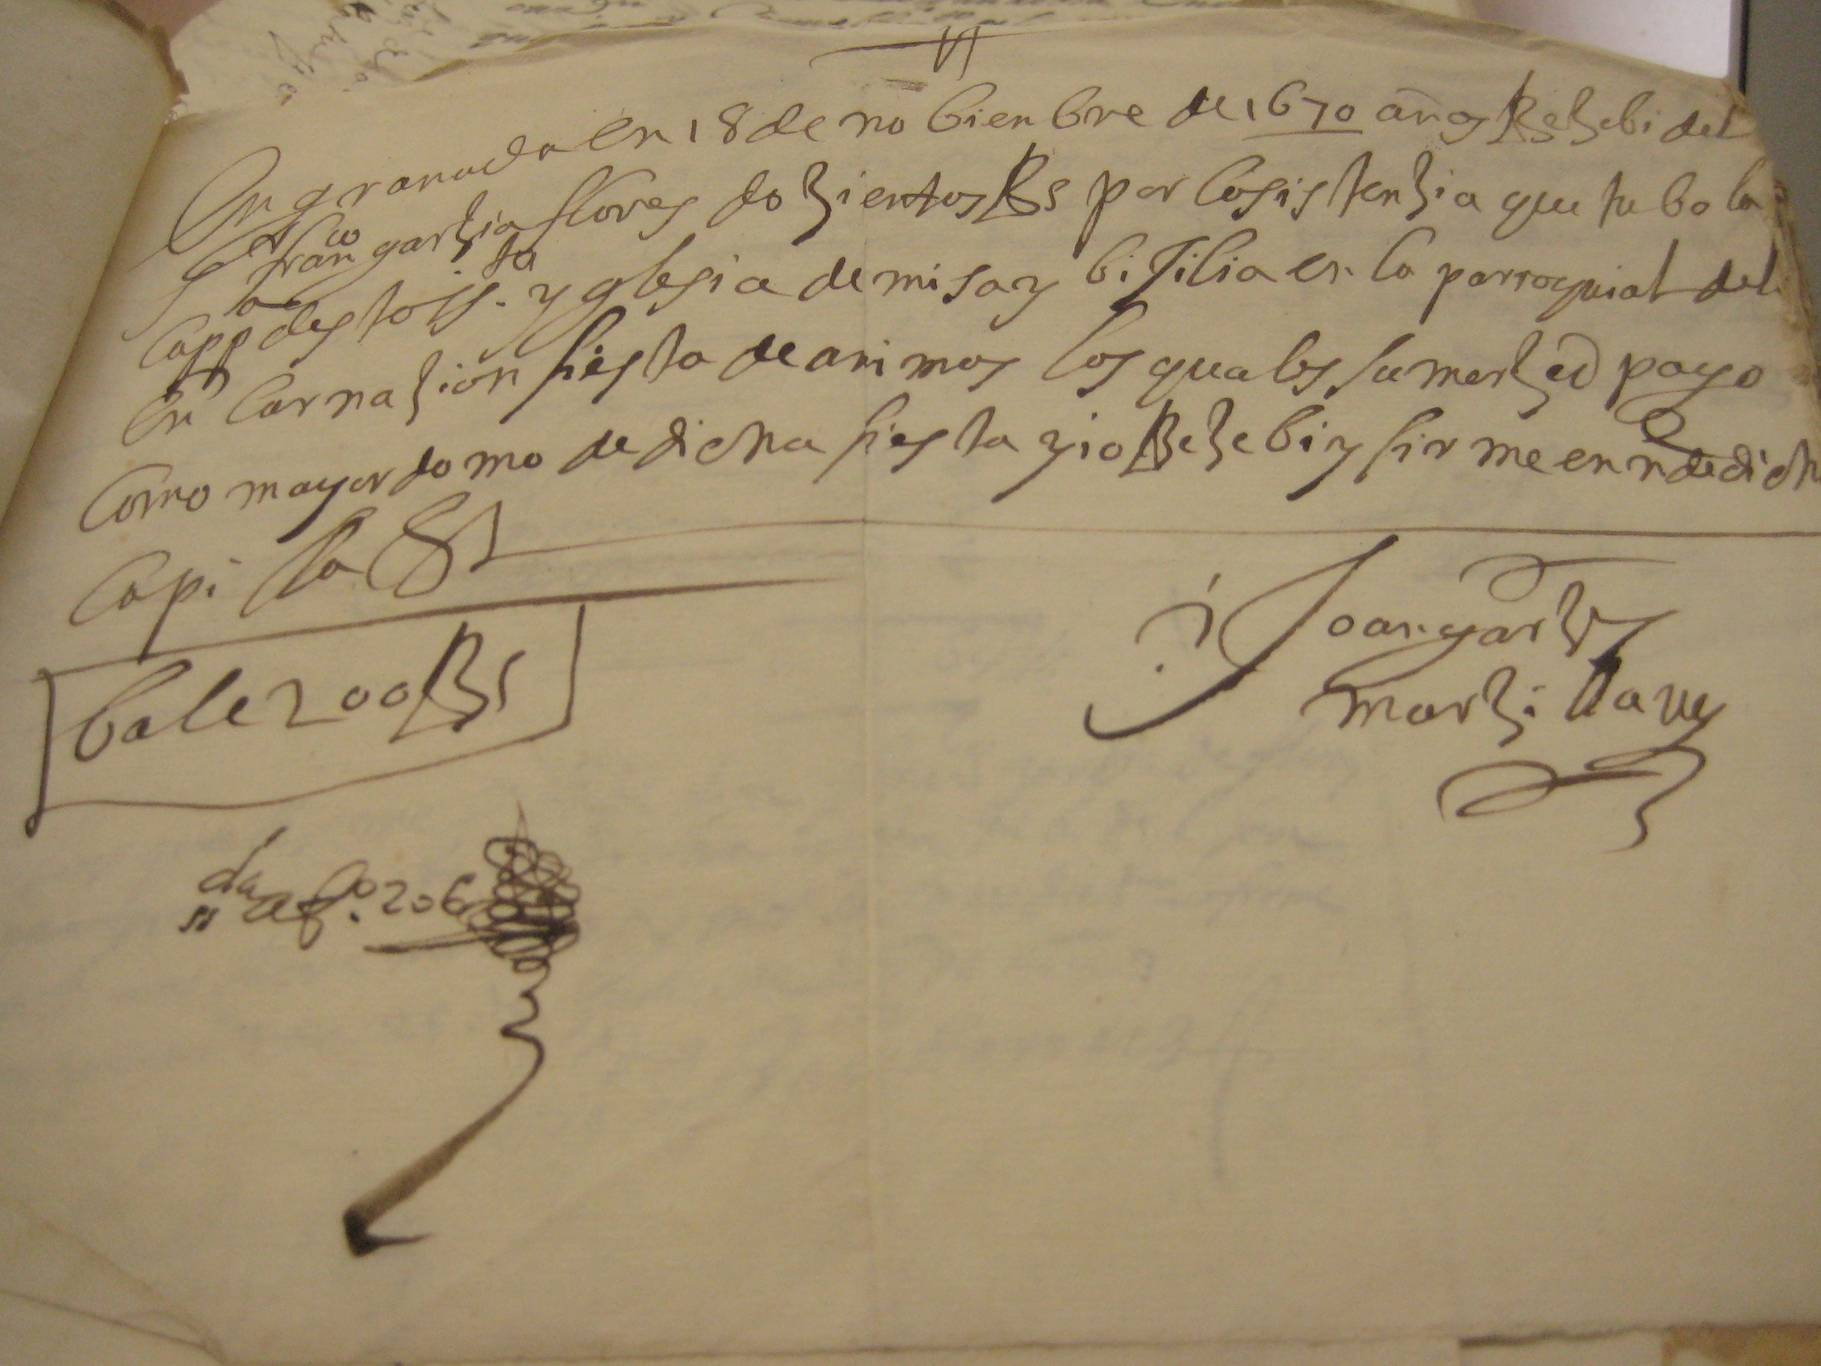 En granada en 18 de nobienbre de 1670 años Rezebi del
franco garzia flores dozientos Rs por la sistenzia que tubo la
cappa desta sta yglesia de misa y bijilia en la parroquial de la
encarnazion fiesta de animas los quales su merzed pago
como mayordomo de dicha fiesta y io Rezebi y firme en nre de dicha
capilla
bale 200 Rs
Joan garzia
marzillaues
206